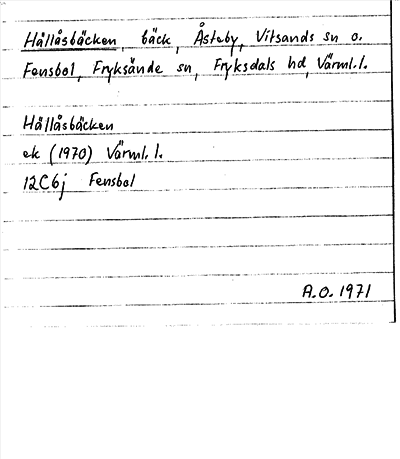 Hållåsbäcken, bäck, Åsteby, Vitsands sn o.
Fensbol, Fryksände sn, Fryksdals hd, Värml. l.
Hållåsbäcken
ek (1970) Värml. l.
12C6j Fensbol
A.O. 1971